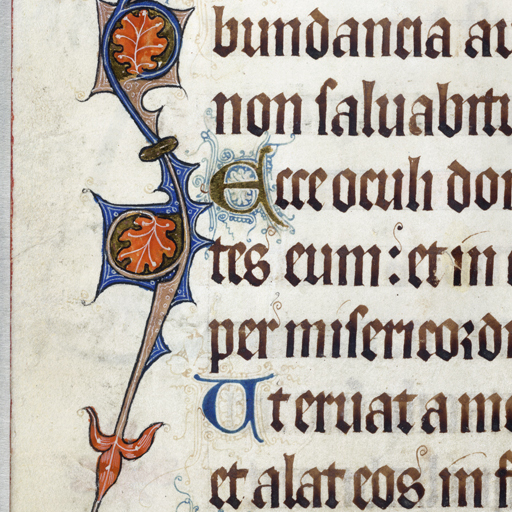 bundancia au
non saluabitu
Ecce oculi dom
tes eum: et in
per misericordi
Ut eruat a mo
et alat eos in f